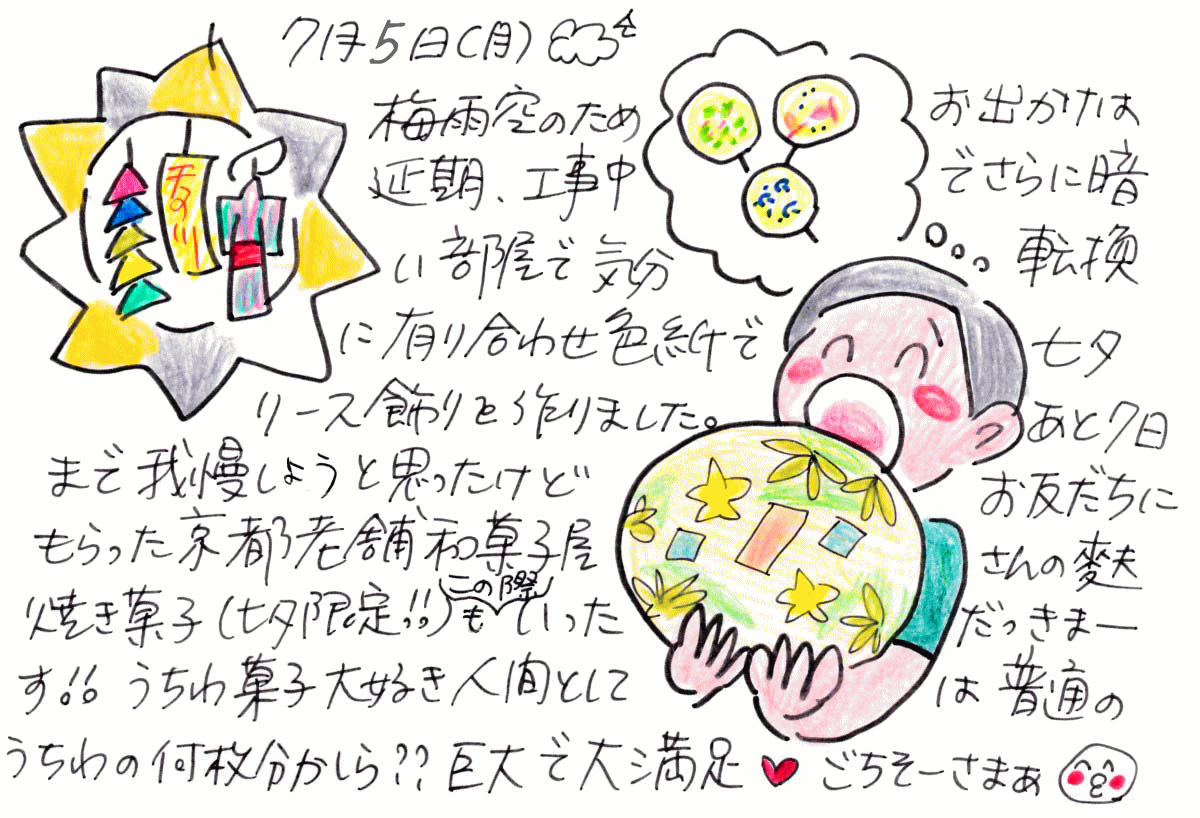 7月5日(月)
梅雨空のため お出かけは
延期、工事中 でさらに暗
い部屋で気分 転換
に有り合わせ色紙で 七夕
リース飾りを作りました。 あと7日
まで我慢しようと思ったけど お友だちに
もらった京都老舗和菓子屋 さんの麩
焼き菓子(七夕限定!!)もいった だっきまー
この際
す!! うちわ菓子大好き人間として は普通の
うちわの何枚分かしら?? 巨大で大満足 ごちそーさまぁ
天の川